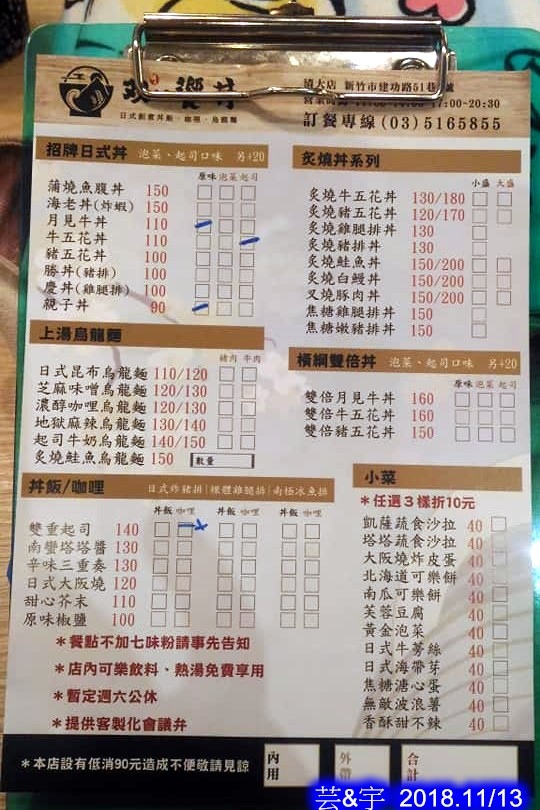 饗丼
日式創意丼飯．咖哩．烏龍麵
清大店 新竹市建功路51巷 號
17:00-20:30
訂餐專線 (03)5165855
招牌日式丼 泡菜、起司口味 另+20
原味 泡菜 起司
蒲燒魚腹丼 150
海老丼(炸蝦) 150
月見牛丼 110
牛五花丼 110
豬五花丼 100
勝丼(豬排) 100
慶丼(雞腿排) 100
親子丼 90
炙燒丼系列
小盛 大盛
炙燒牛五花丼 130/180
炙燒豬五花丼 120/170
炙燒雞腿排丼 130
炙燒豬排丼 130
炙燒鮭魚丼 150/200
炙燒白鰻丼 150/200
叉燒豚肉丼 150/200
焦糖雞腿排丼 150
焦糖嫩豬排丼 150
上湯烏龍麵
豬肉 牛肉
日式昆布烏龍麵 110/120
芝麻味噌烏龍麵 120/130
濃醇咖哩烏龍麵 120/130
地獄麻辣烏龍麵 130/140
起司牛奶烏龍麵 140/150
炙燒鮭魚烏龍麵 150 數量
橫綱雙倍丼 泡菜、起司口味 另+20
原味 泡菜 起司
雙倍月見牛丼 160
雙倍牛五花丼 160
雙倍豬五花丼 150
丼飯/咖哩 日式炸豬排|裸體雞腿排|南極冰魚排
丼飯 咖哩 丼飯 咖哩 丼飯 咖哩
雙重起司 140
南蠻塔塔醬 130
辛味三重奏 130
日式大阪燒 120
甜心芥末 110
原味椒鹽 100
小菜
*任選3樣折10元
凱薩蔬食沙拉 40
塔塔蔬食沙拉 40
大阪燒炸皮蛋 40
北海道可樂餅 40
南瓜可樂餅 40
芙蓉豆腐 40
黃金泡菜 40
日式牛蒡絲 40
日式海帶芽 40
焦糖溏心蛋 40
無敵波浪薯 40
香酥甜不辣 40
*餐點不加七味粉請事先告知
*店內可樂飲料、熱湯免費享用
*暫定週六公休
*提供客製化會議弁
*本店設有低消90元造成不便敬請見諒
內用
外帶
合計
芸&宇 2018.11/13